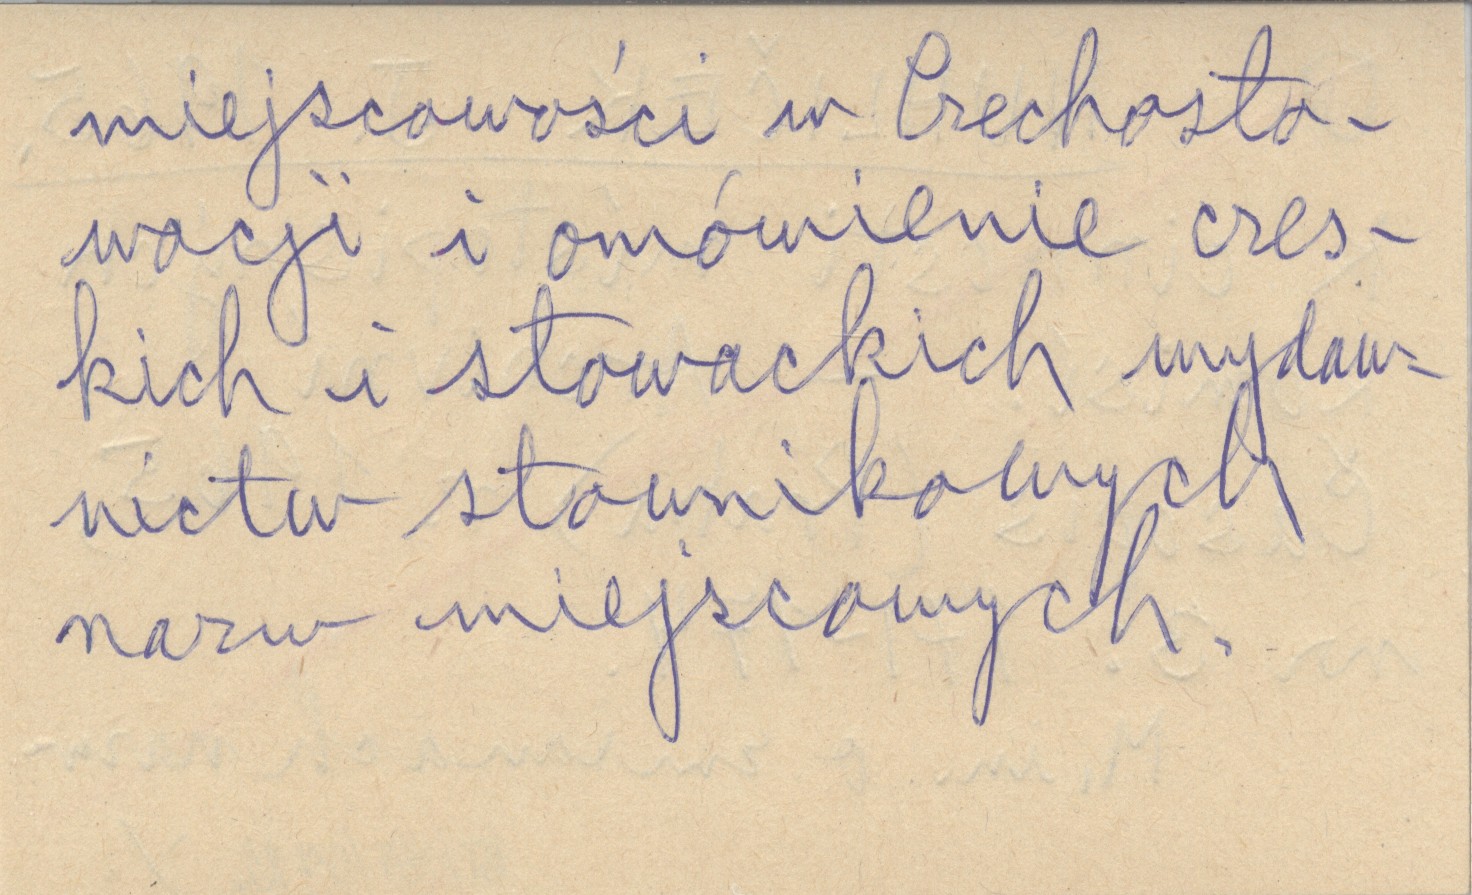 miejscowości w Czechosło-
wacji i omówienie czes-
kich i słowackich wydaw-
nictw słownikowych
nazw miejscowych.